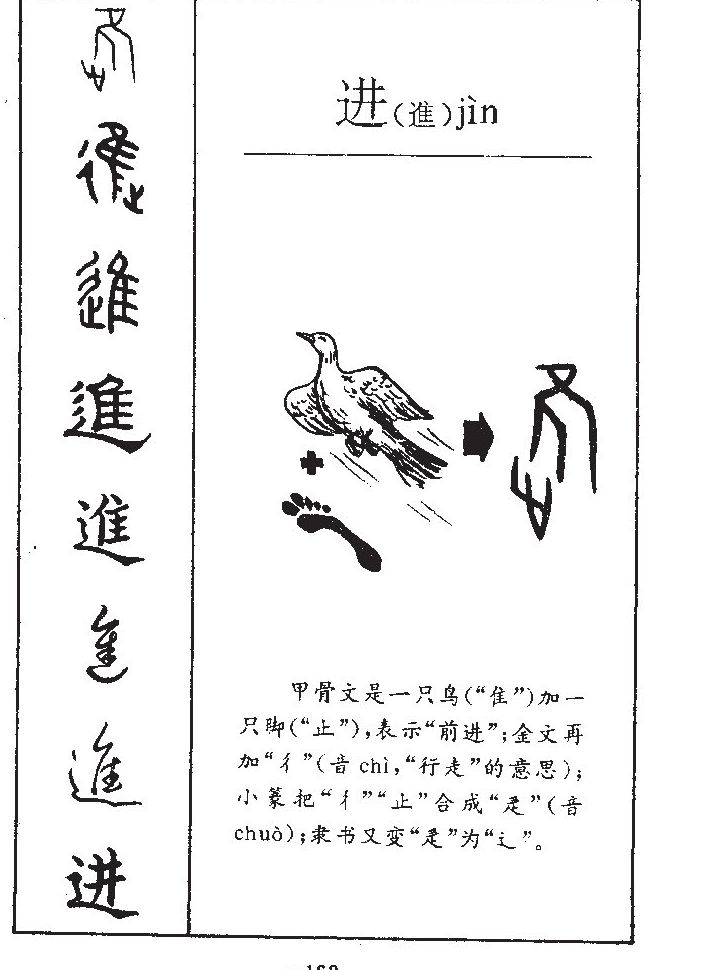 進
進
進
進
進
進
进
进(進)jìn
甲骨文是一只鸟(“隹”)加一
只脚(“止”),表示“前进”;金文再
加“彳”(音 chì,“行走”的意思);
小篆把“彳”“止”合成“辵”(音
chuò);隶书又变“辵”为“辶”。